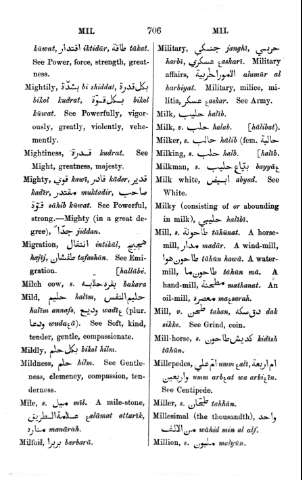 MIL. 706 MIL.
kŭwat, اقتدار iktidâr, طاقة tâkat.
See Power, force, strength, great-
ness.
Mightily, بكل شدّة bi shiddat,
bikol kudrat, بكل قوّة bikol
kŭwat. See Powerfully, vigor-
ously, greatly, violently, vehe-
mently.
Mightiness, قدرة kudrat. See
Might, greatness, majesty.
Mighty, قوي kawî, قادر kâdar, قدير
kadîr, مقتدر muktadir, صاحب
قوّة sâhib kŭwat. See Powerful,
strong.—Mighty (in a great de-
gree), جداً jiddan.
Migration, انتقال intikâl,
hejrj, طفشان tafashân. See Emi-
gration. [hallâbé.
Milch cow, s. بقرة حلابه bakara
Mild, حليم halîm, حليم النفس
halîm annafs, وديع wadî (plur.
ودعا wuda). See Soft, kind,
tender, gentle, compassionate.
Mildly, بكل حلم bikol hilm.
Mildness, حلم hilm. See Gentle-
ness, clemency, compassion, ten-
derness.
Mile, s. ميل mîl. A mile-stone,
علامة الطريق alâmat attarîk,
مناره manârah.
Milfoil, بربرا barbarâ.
Military, جنكي janghî, حربي
harbî, عسكري askarî. Military
affairs, الامور الحربية alamûr al
harbîyat. Military, milice, mi-
litia, عسكر askar. See Army.
Milk, حليب halîb.
Milk, v. حلب halab. [hâlibat).
Milker, s. حالب hâlib (fem. حالبة
Milking, s. حلب halb. [halîb.
Milkman, s. بيّاع حليب bayyâ
Milk white, ابيض abyad. See
White.
Milky (consisting of or abounding
in milk), حليبي halîbî.
Mill, s. طاحونة tâhûnat. A horse-
mill, مدار madâr. A wind-mill,
طاحون هوا tâhûn hawâ. A water-
mill, طاحون ما tâhûn mâ. A
hand-mill, مطحنة mathanat. An
oil-mill, معصره maasarah.
Mill, v. طحن tahan, دق dak
sikke. See Grind, coin.
Mill-horse, s. كديش طاحون kidîsh
tâhûn.
Millepedes, ام علي umm alî, ام اربعة
واربعين umm arbaat wa arbîn.
See Centipede.
Miller, s. طحّان tahhân.
Millesimal (the thousandth), واحد
من الالف wâhid min al alf.
Million, s. مليون melyûn.